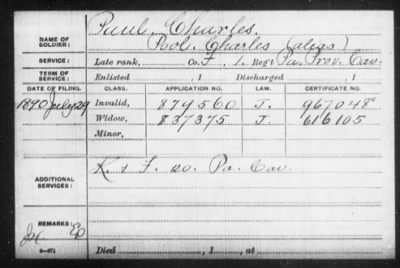 Paul, Charles.
NAME OF SOLDIER: Pool, Charles (alias)
SERVICE: Late rank, Co. F, 1. Reg't Pa. Prov. Cav.
TERM OF SERVICE: Enlisted , 1 Discharged , 1
DATE OF FILING. CLASS. APPLICATION NO. LAW. CERTIFICATE NO.
1890 July 29 Invalid, 879560 J. 967048
Widow, 837375 J. 616105
Minor,
ADDITIONAL SERVICES: K + F co. Pa. Cav.
REMARKS:
Died , 1 , at